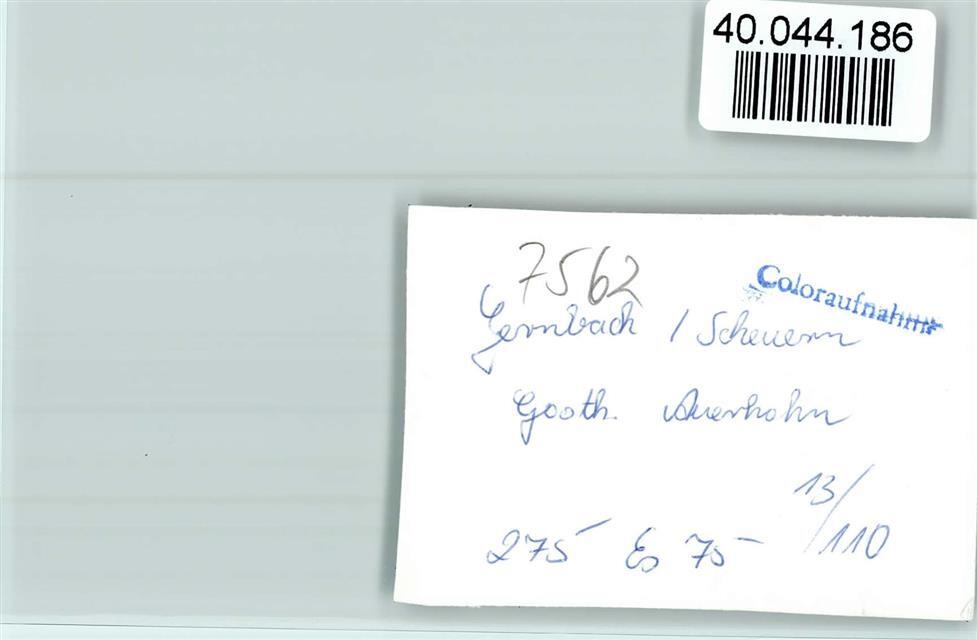 40.044.186
7562
Coloraufnahme
Gernbach / Scheuern
Gasth. Auerhahn
13/110
275 Es 75